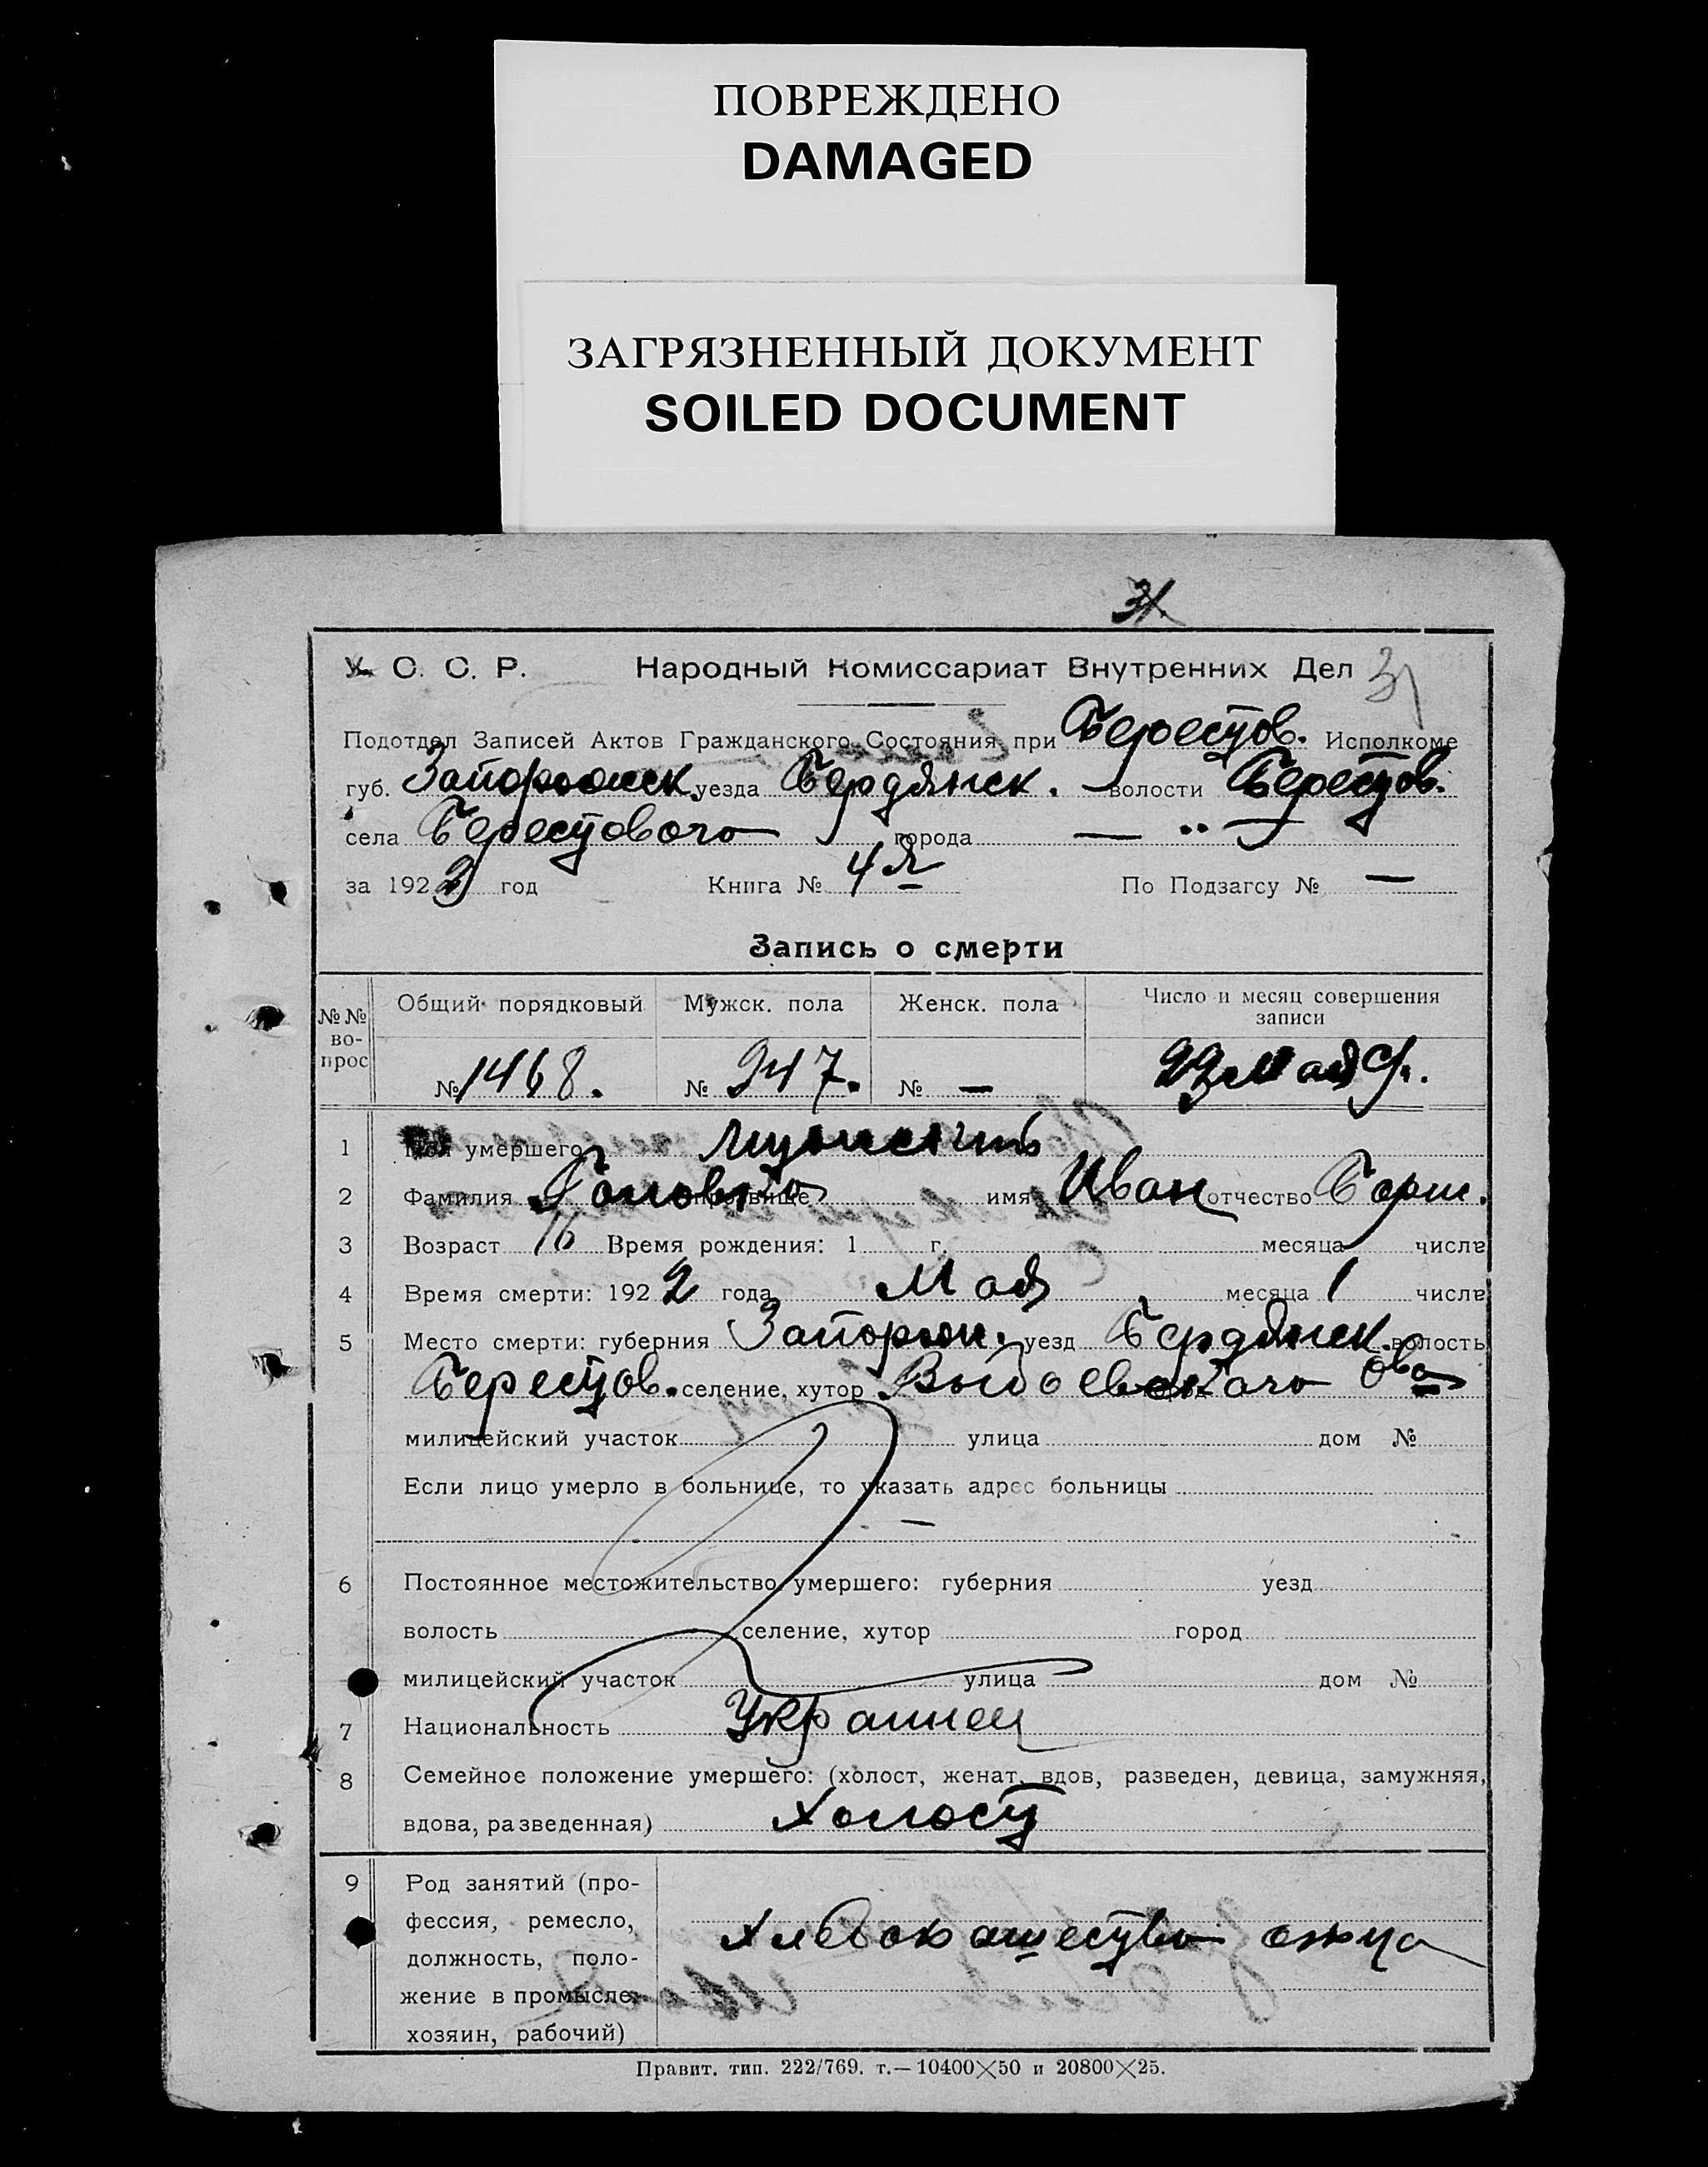 ПОВРЕЖДЕНО
DAMAGED
ЗАГРЯЗНЕННЫЙ ДОКУМЕНТ
SOILED DOCUMENT
31
У. С. С. Р. Народный Комиссариат Внутренних Дел 31
Подотдел Записей Актов Гражданского Состояния при Берестов. Исполкоме
губ. Запорожск. уезда Бердянск. волости Берестов.
села Берестового города — „ —
за 1922 год Книга № 4я По Подзагсу № —
Запись о смерти
№№ вопрос Общий порядковый Мужск. пола Женск. пола Число и месяц совершения записи
№ 1468. № 947. № — 23 Мая
1 Пол умершего мужской
2 Фамилия прозвище имя Иван отчество
3 Возраст 16 Время рождения: 1 г. месяца числа
4 Время смерти: 1922 года Мая месяца 1 числа
5 Место смерти: губерния Запорож. уезд Бердянск. волость
Берестов. селение, хутор
милицейский участок улица дом №
Если лицо умерло в больнице, то указать адрес больницы
—
6 Постоянное местожительство умершего: губерния уезд
волость селение, хутор город
милицейский участок улица дом №
7 Национальность Украинец
8 Семейное положение умершего: (холост, женат, вдов, разведен, девица, замужняя,
вдова, разведенная) Холост
9 Род занятий (про-
фессия, ремесло,
должность, поло-
жение в промысле:
хозяин, рабочий)
Правит. тип. 222/769. т.—10400×50 и 20800×25.